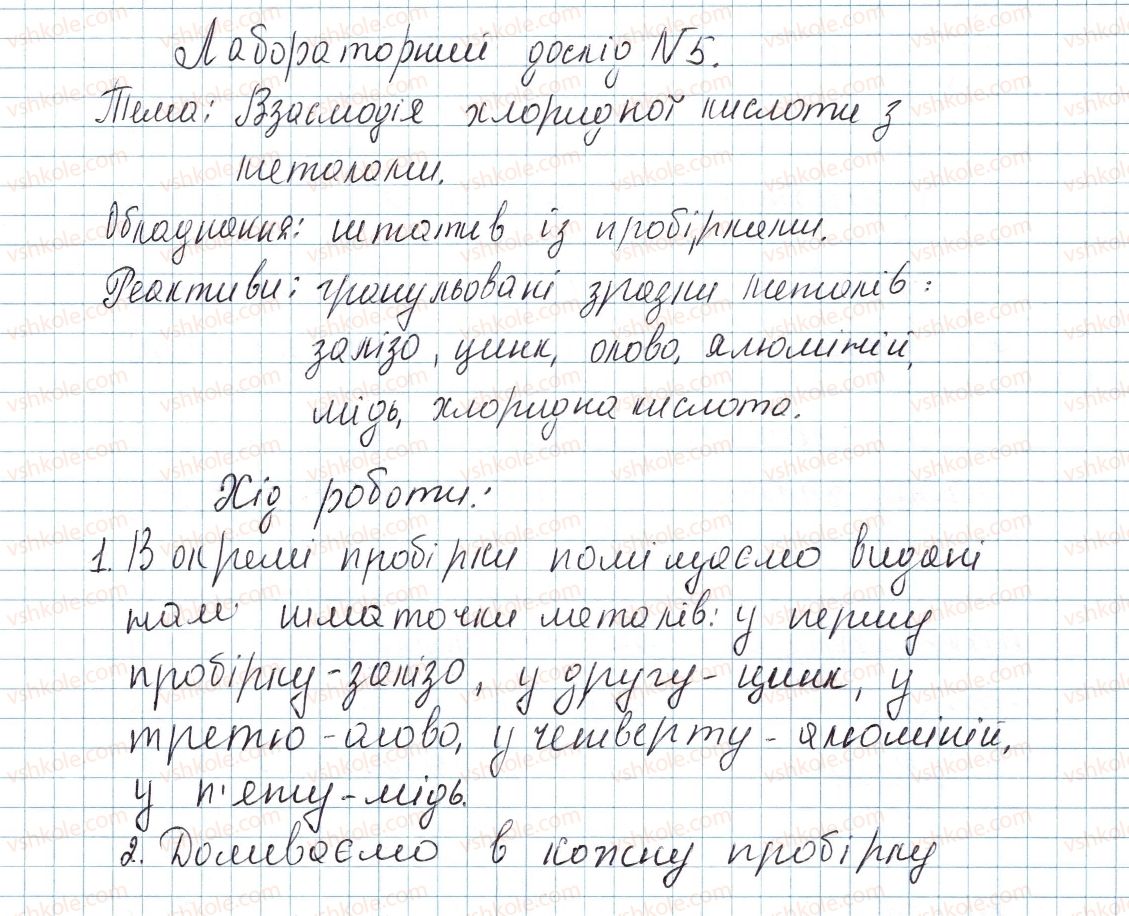 Лабораторний дослід №5.
Тема: Взаємодія хлоридної кислоти з
металами.
Обладнання: штатив із пробірками.
Реактиви: гранульовані зразки металів:
залізо, цинк, олово, алюміній,
мідь, хлоридна кислота.
Хід роботи:
1. В окремі пробірки поміщаємо видані
нам шматочки металів: у першу
пробірку - залізо, у другу - цинк, у
третю - олово, у четверту - алюміній,
у п'яту - мідь.
2. Доливаємо в кожну пробірку